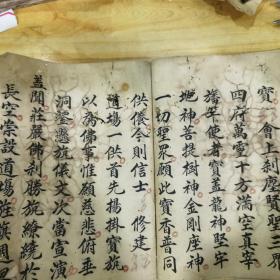 寶
會上利賢聖
四府萬靈十方滿空真宰
旛竿使者寶蓋龍神堅牢
地神菩提樹神金剛座神
一切聖眾願此寶香普同
供養今則信士　修建
道場一供首先揚掛寶旛
以為佛事惟願慈悲俯垂
洞鑒懸旛儀文以當宣演
蓋聞莊嚴佛利勝旛繚繞於
長空崇設道場